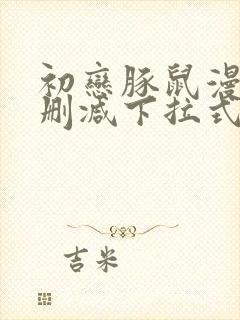 初戀豚鼠漫
刪減下拉式
吉米